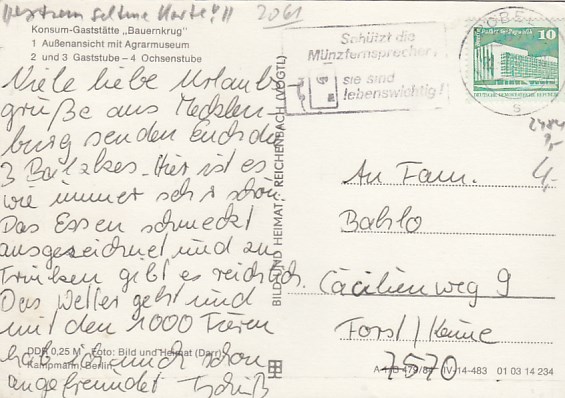 "extrem seltene Karte!"
2061
Konsum-Gaststätte „Bauernkrug"
1 Außenansicht mit Agrarmuseum
2 und 3 Gaststube – 4 Ochsenstube
Viele liebe Urlaubs
grüße aus Mecklen-
burg senden Euch die
3 Bailzkes. Hier ist es
wie immer sehr schön.
Das Essen schmeckt
ausgezeichnet und zu
Trinken gibt es reichlich.
Das Wetter geht und
mit den 1000 Tieren
hab ich mich schon
angefreundet Tschüß
DDR 0,25 M Foto: Bild und Heimat (Darr)
Kampmann, Berlin
BILD UND HEIMAT · REICHENBACH (VOGTL)
Schützt die
Münzfernsprecher,
sie sind
lebenswichtig!
10
DEUTSCHE DEMOKRATISCHE REPUBLIK
4,-
An Fam.
Bahlo
Cäcilienweg 9
Forst/Keune
7570
A 1/B 479/84 IV-14-483 01 03 14 234